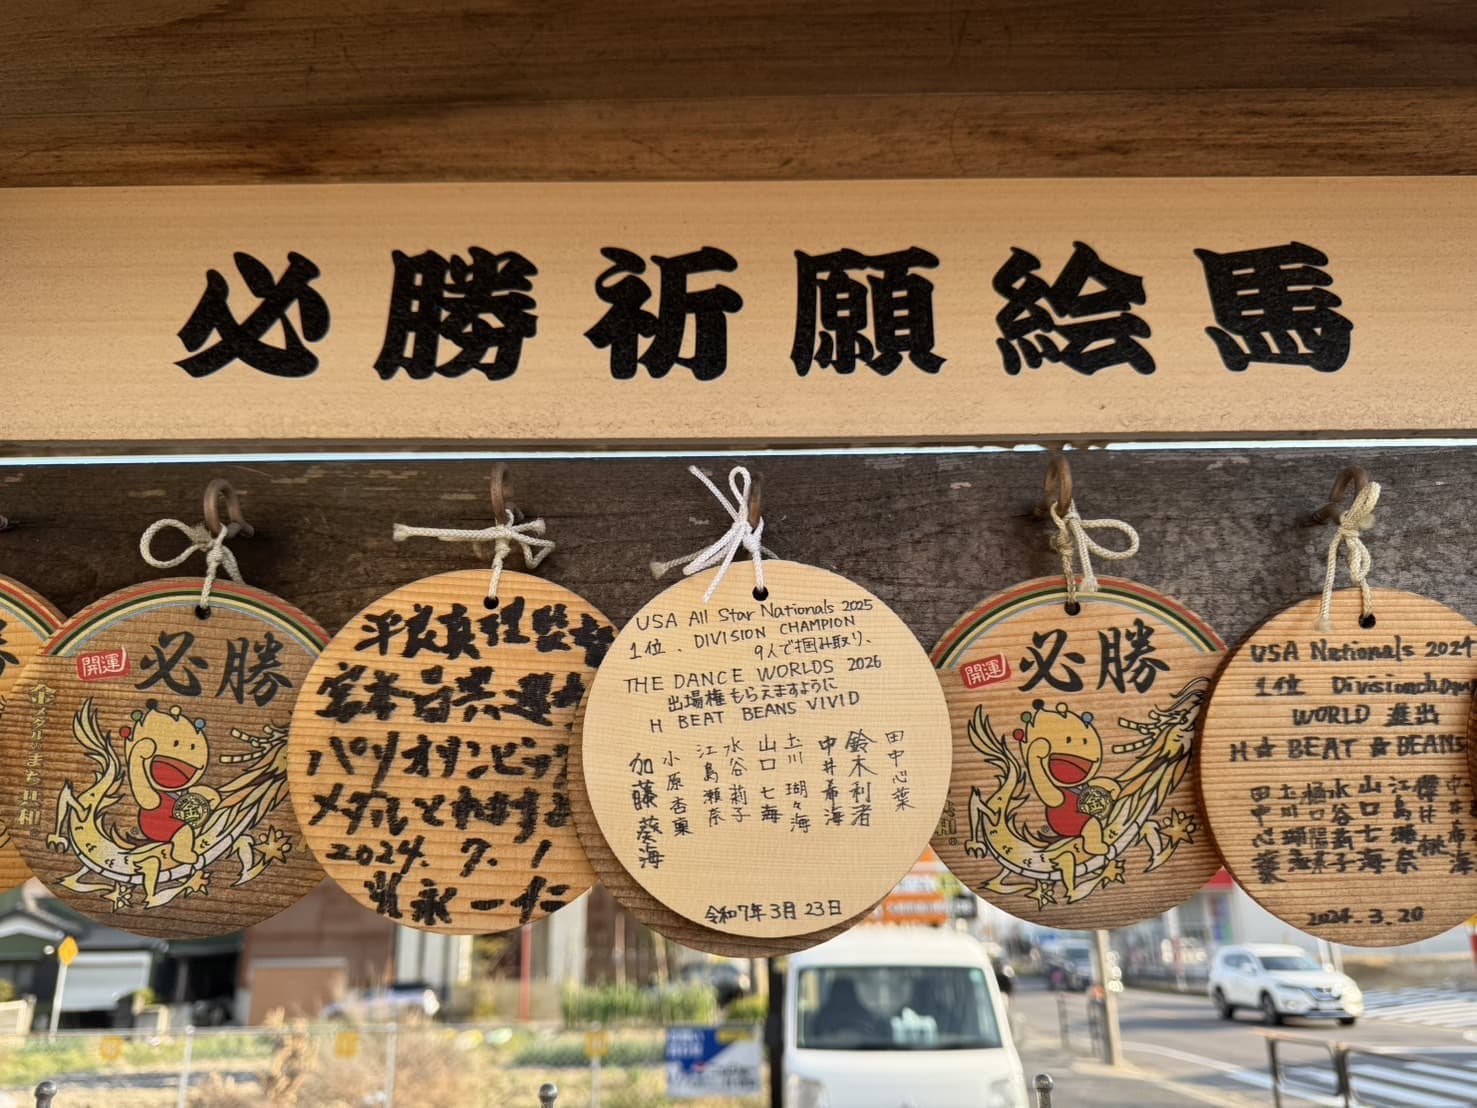 必勝祈願絵馬
開運
必勝
金メダルのまち日和
パリオリンピック
メダルとれますよ
2024. 7. 1
USA All Star Nationals 2025
1位、DIVISION CHAMPION
9人で掴み取り、
THE DANCE WORLDS 2026
出場権もらえますように
H BEAT BEANS VIVID
田中心葉
鈴木利者
中井希海
土川瑚々海
山口七海
水谷莉子
江島瀬奈
小原杏東
加藤葵海
令和7年3月23日
開運
必勝
USA Nationals 2024
1位 Division
WORLD 進出
H☆BEAT☆BEANS
中井希海
桃
江島瀬奈
山口七海
水谷莉子
土川瑚
田中心葉
2024.3.20